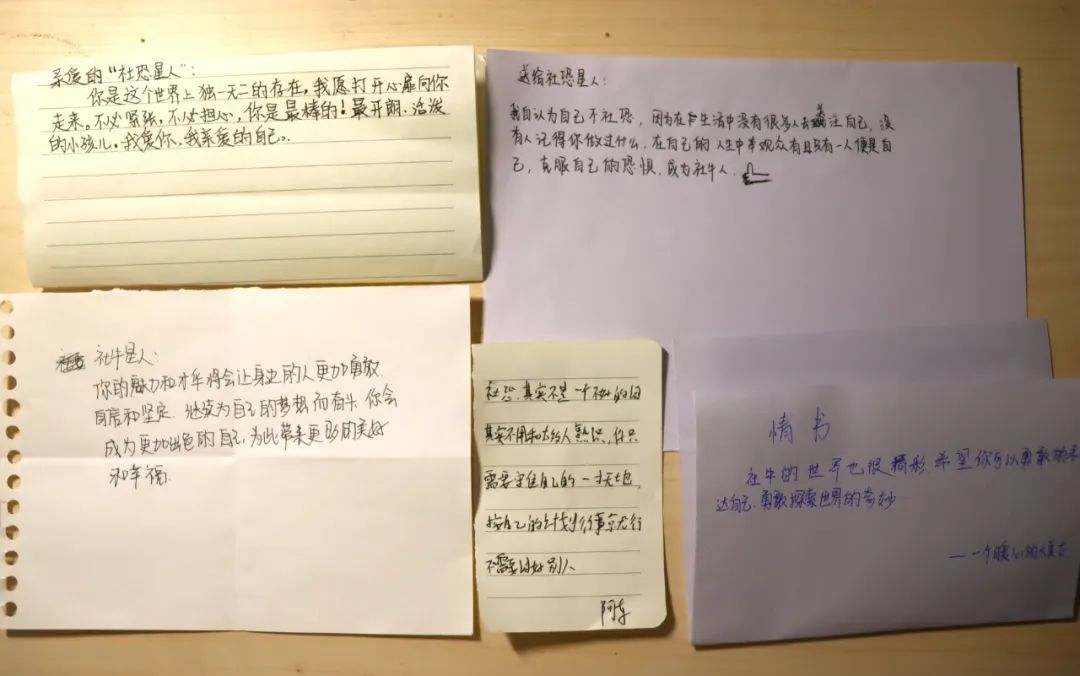 亲爱的“社恐星人”：
你是这个世界上独一无二的存在，我愿打开心扉向你
走来。不必紧张，不必担心，你是最棒的！最开朗、活泼
的小孩儿。我爱你，我亲爱的自己。
送给社恐星人：
我自认为自己不社恐，因为在生活中没有很多人去关注自己，没
有人记得你做过什么，在自己的人生中本观众有且只有一人便是自
己，克服自己的恐惧，成为社牛人
社牛星人：
你的魅力和才华将会让身边的人更加勇敢
自信和坚定，继续为自己的梦想而奋斗，你会
成为更加出色的自己，为此带来更多的美好
和幸福
社恐，其实不是一个
其实不用和太多人熟识，你只
需要守住自己的一寸天地，
按自己的计划行事就行
不需要讨好别人
阿东
情书
社牛的世界也很精彩 希望你可以勇敢的表
达自己，勇敢探索世界的奇妙
——一个暖心的